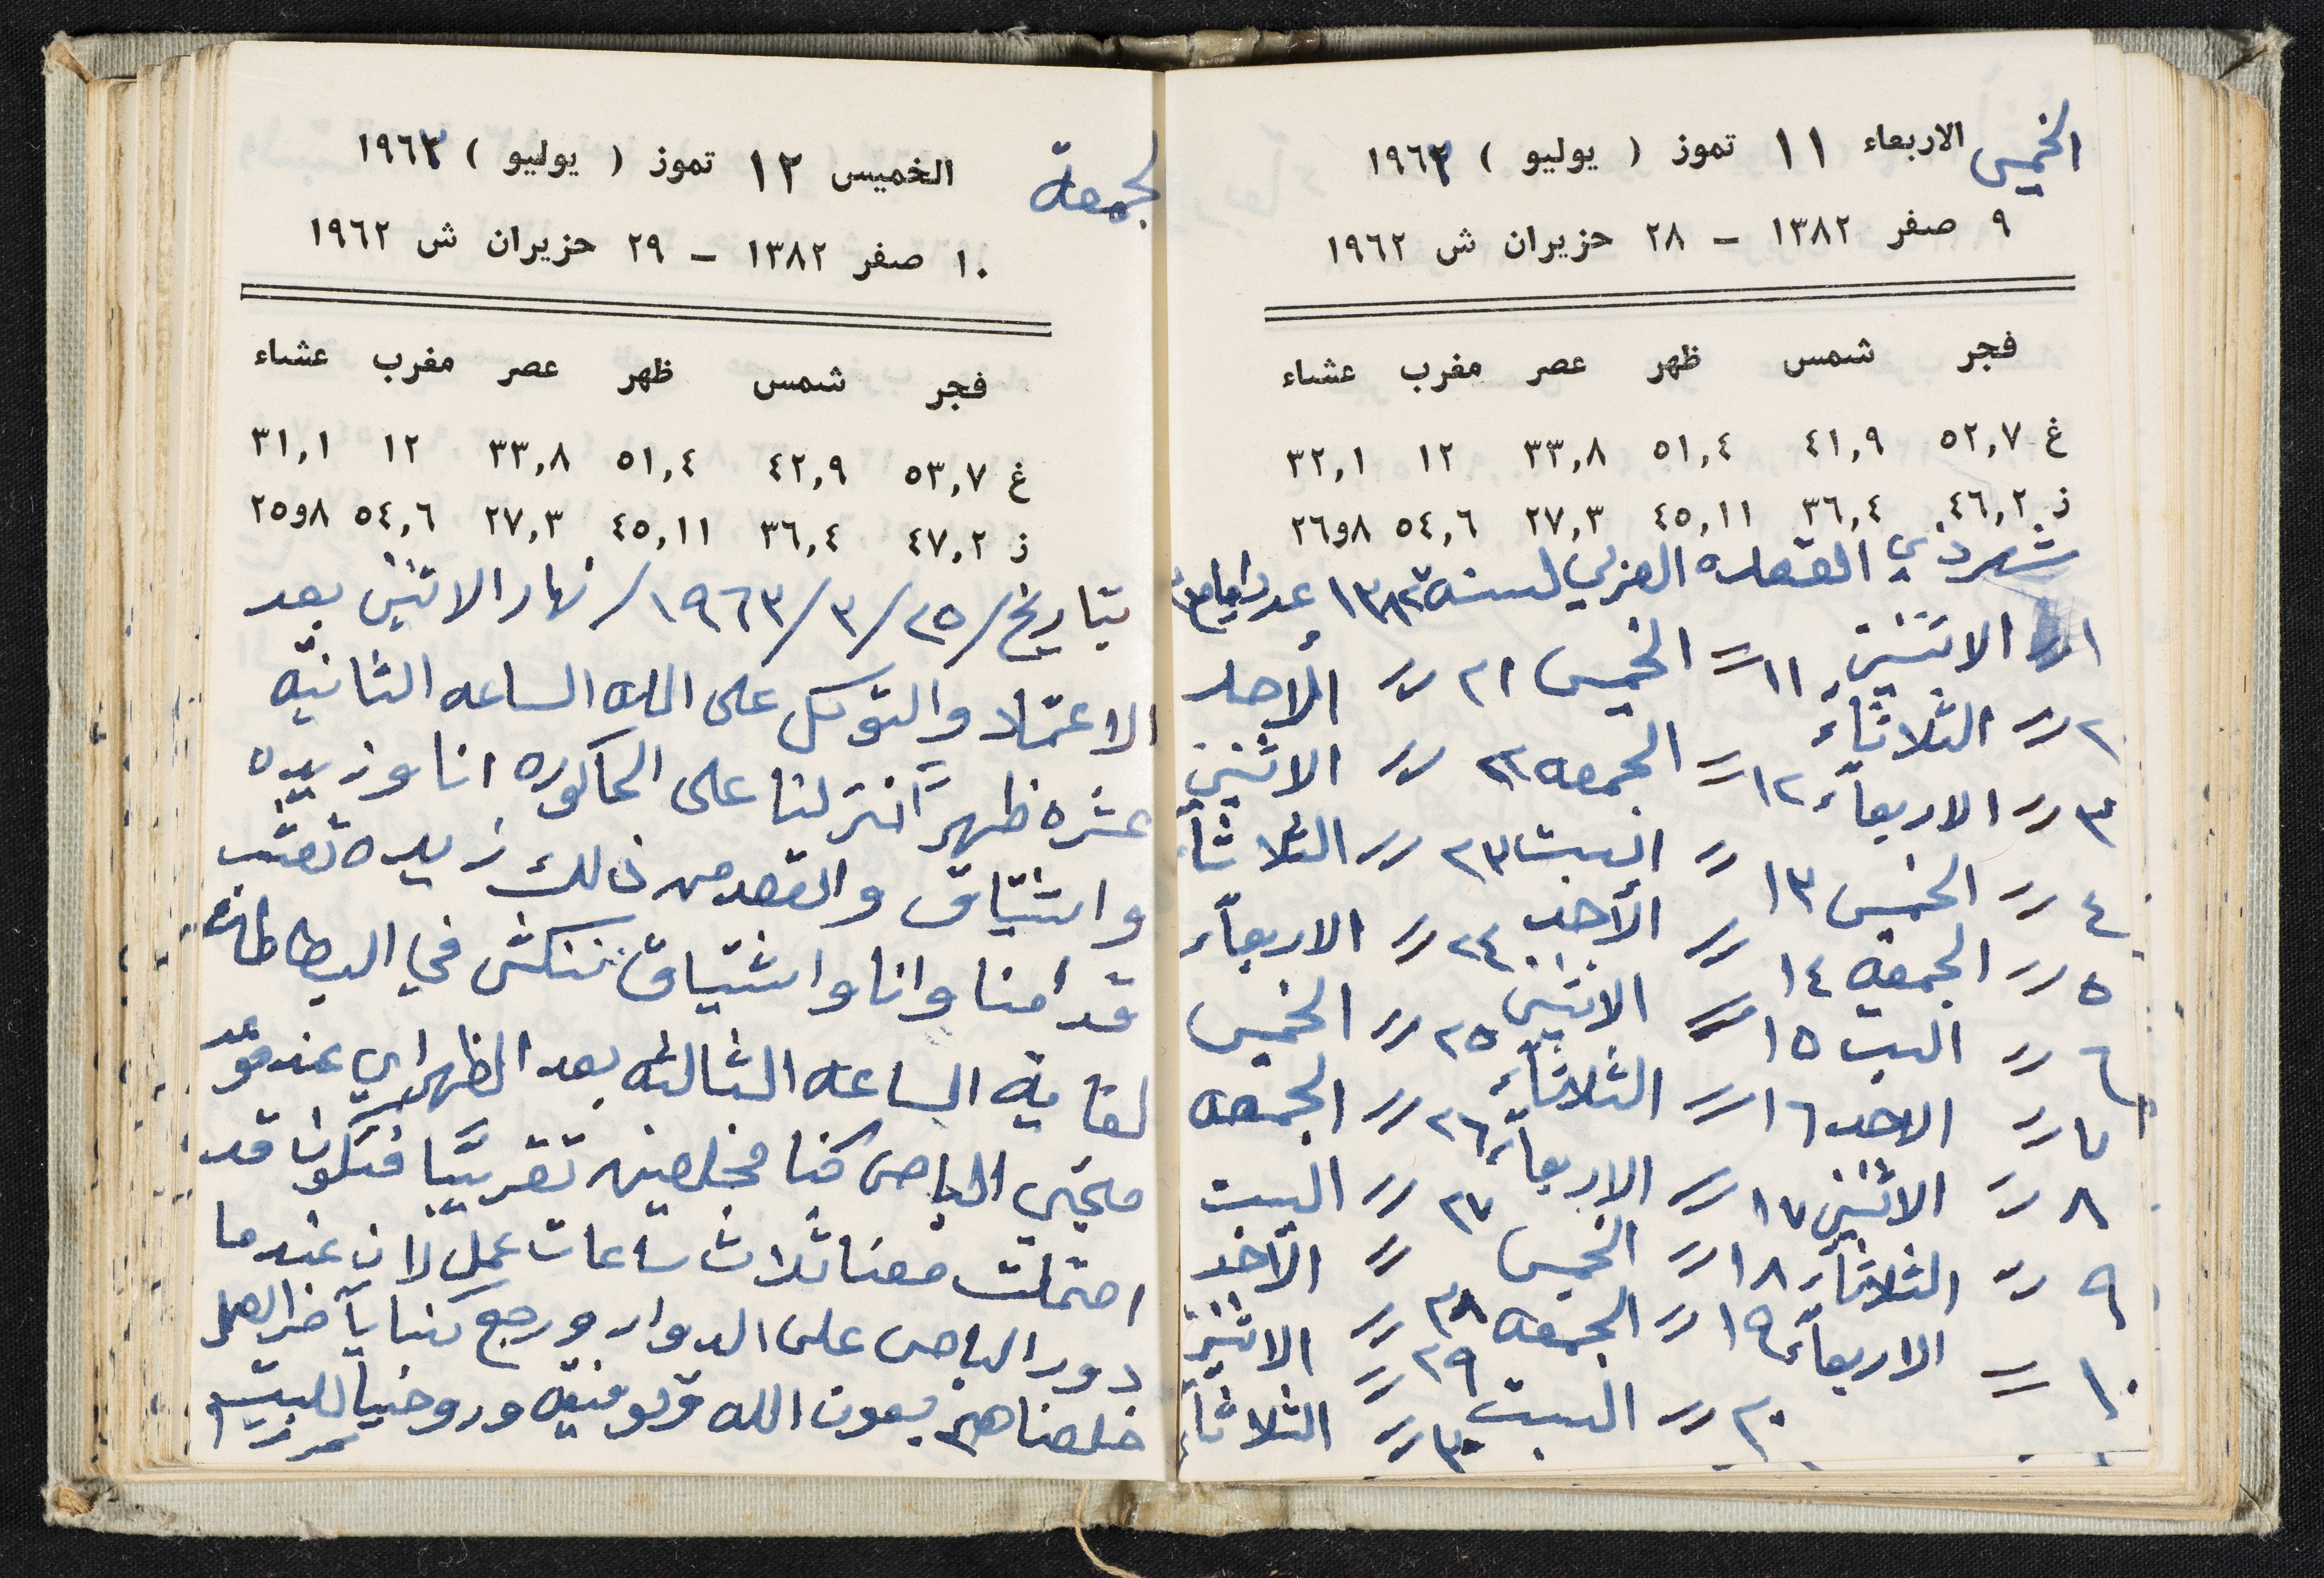 الخميس الاربعاء ١١ تموز ( يوليو ) ١٩٦٣
٩ صفر ١٣٨٢ – ٢٨ حزيران ش ١٩٦٢
فجر شمس ظهر عصر مغرب عشاء
غ ٥٢,٧ ٤١,٩ ٥١,٤ ٣٣,٨ ١٢ ٣٢,١
ز ٤٦,٢ ٣٦,٤ ٤٥,١١ ٢٧,٣ ٥٤,٦ ٨و٢٦
شهر ذي القعده العربي لسنة ١٣٨٢ عدد ايامه ٣٠
١ الاثنين ١١ = الخميس ٢١ = الأحد
٢ = الثلاثاء ١٢ = الجمعه ٢٢ = الاثنين
٣ = الاربعاء ١٣ = السبت ٢٣ = الثلاثاء
٤ = الخميس ١٤ = الأحد ٢٤ = الاربعاء
٥ = الجمعه ١٥ = الاثنين ٢٥ = الخميس
٦ = السبت ١٦ = الثلاثاء ٢٦ = الجمعه
٧ = الاحد ١٧ = الاربعاء ٢٧ = السبت
٨ = الاثنين ١٨ = الخميس ٢٨ = الأحد
٩ = الثلاثاء ١٩ = الجمعه ٢٩ = الاثنين
١٠ = الاربعاء ٢٠ = السبت ٣٠ = الثلاثاء
لجمعة الخميس ١٢ تموز ( يوليو ) ١٩٦٣
١٠ صفر ١٣٨٢ – ٢٩ حزيران ش ١٩٦٢
فجر شمس ظهر عصر مغرب عشاء
غ ٥٣,٧ ٤٢,٩ ٥١,٤ ٣٣,٨ ١٢ ٣١,١
ز ٤٧,٢ ٣٦,٤ ٤٥,١١ ٢٧,٣ ٥٤,٦ ٨و٢٥
بتاريخ/٢٥/٣/١٩٦٣/ نهار الاثنين بعد
الاعتماد والتوكل على الله الساعه الثانيه
عشره ظهرًا نزلنا على الحاكوره انا وزبيده
واشتياق والقصد من ذلك زبيده تعشب
قدامنا وانا واشتياق ننكش في البطاطا
لغاية الساعه الثالثه بعد الظهر اي عند موعد
مجيئ الباص كنا مخلصين تقريبًا فتكون قد
احتملت معنا ثلاث ساعات عمل لان عندما
دور الباص على الدوار ورجع كنا بآخر العمل
خلصناهم بعون الله وتوفيقه وروحنا للبيت